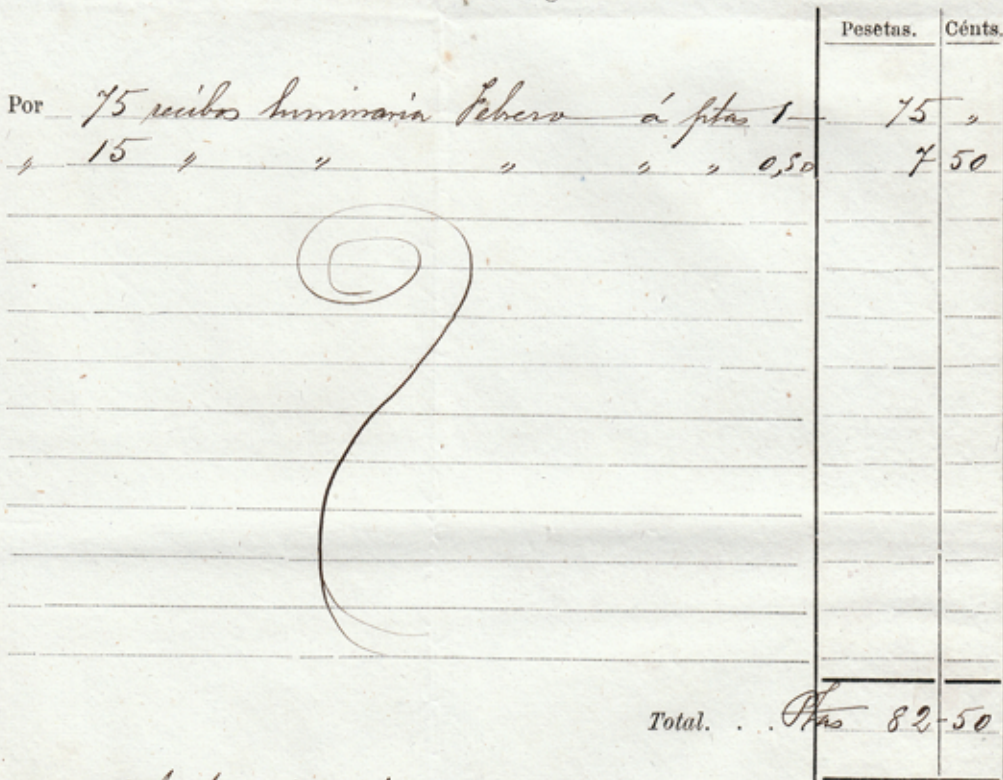 Pesetas. Cénts.
Por 75 recibos luminaria Febrero á ptas 1— 75 "
" 15 " " " " " 0,50 7 50
Total. . . Ptas 82-50